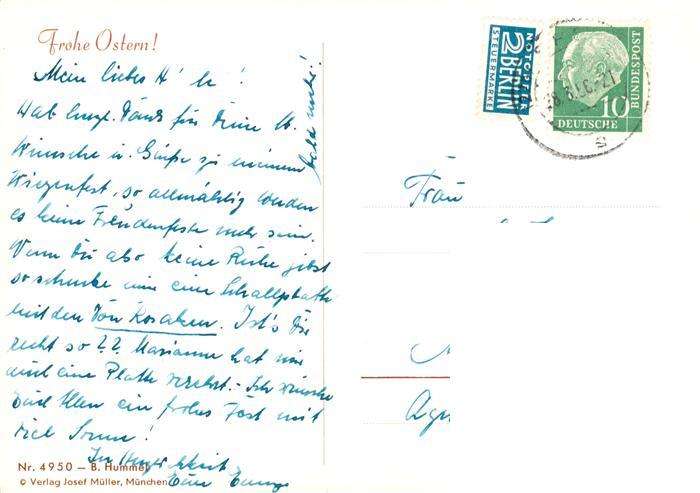 Frohe Ostern!
Mein liebes H' l!
Hab herzl. Dank für Deine lb.
Wünsche u. Grüße zu meinem
Wiegenfest, so allmählig werden
es keine Freudenfeste mehr sein.
Wenn Du also keine Ruhe gibst
so schenke mir eine Schallplatte
mit den Don Kosaken. Ist's Dir
recht so?? Marianne hat mir
auch eine Platte verehrt. - Ich wünsche
Euch Allen ein frohes Fest mit
viel Sonne!
In
Eure
bald mehr!
Nr. 4950 – B. Hummel
© Verlag Josef Müller, München
NOTOPFER
2 BERLIN
STEUERMARKE
10
DEUTSCHE
BUNDESPOST
Frau